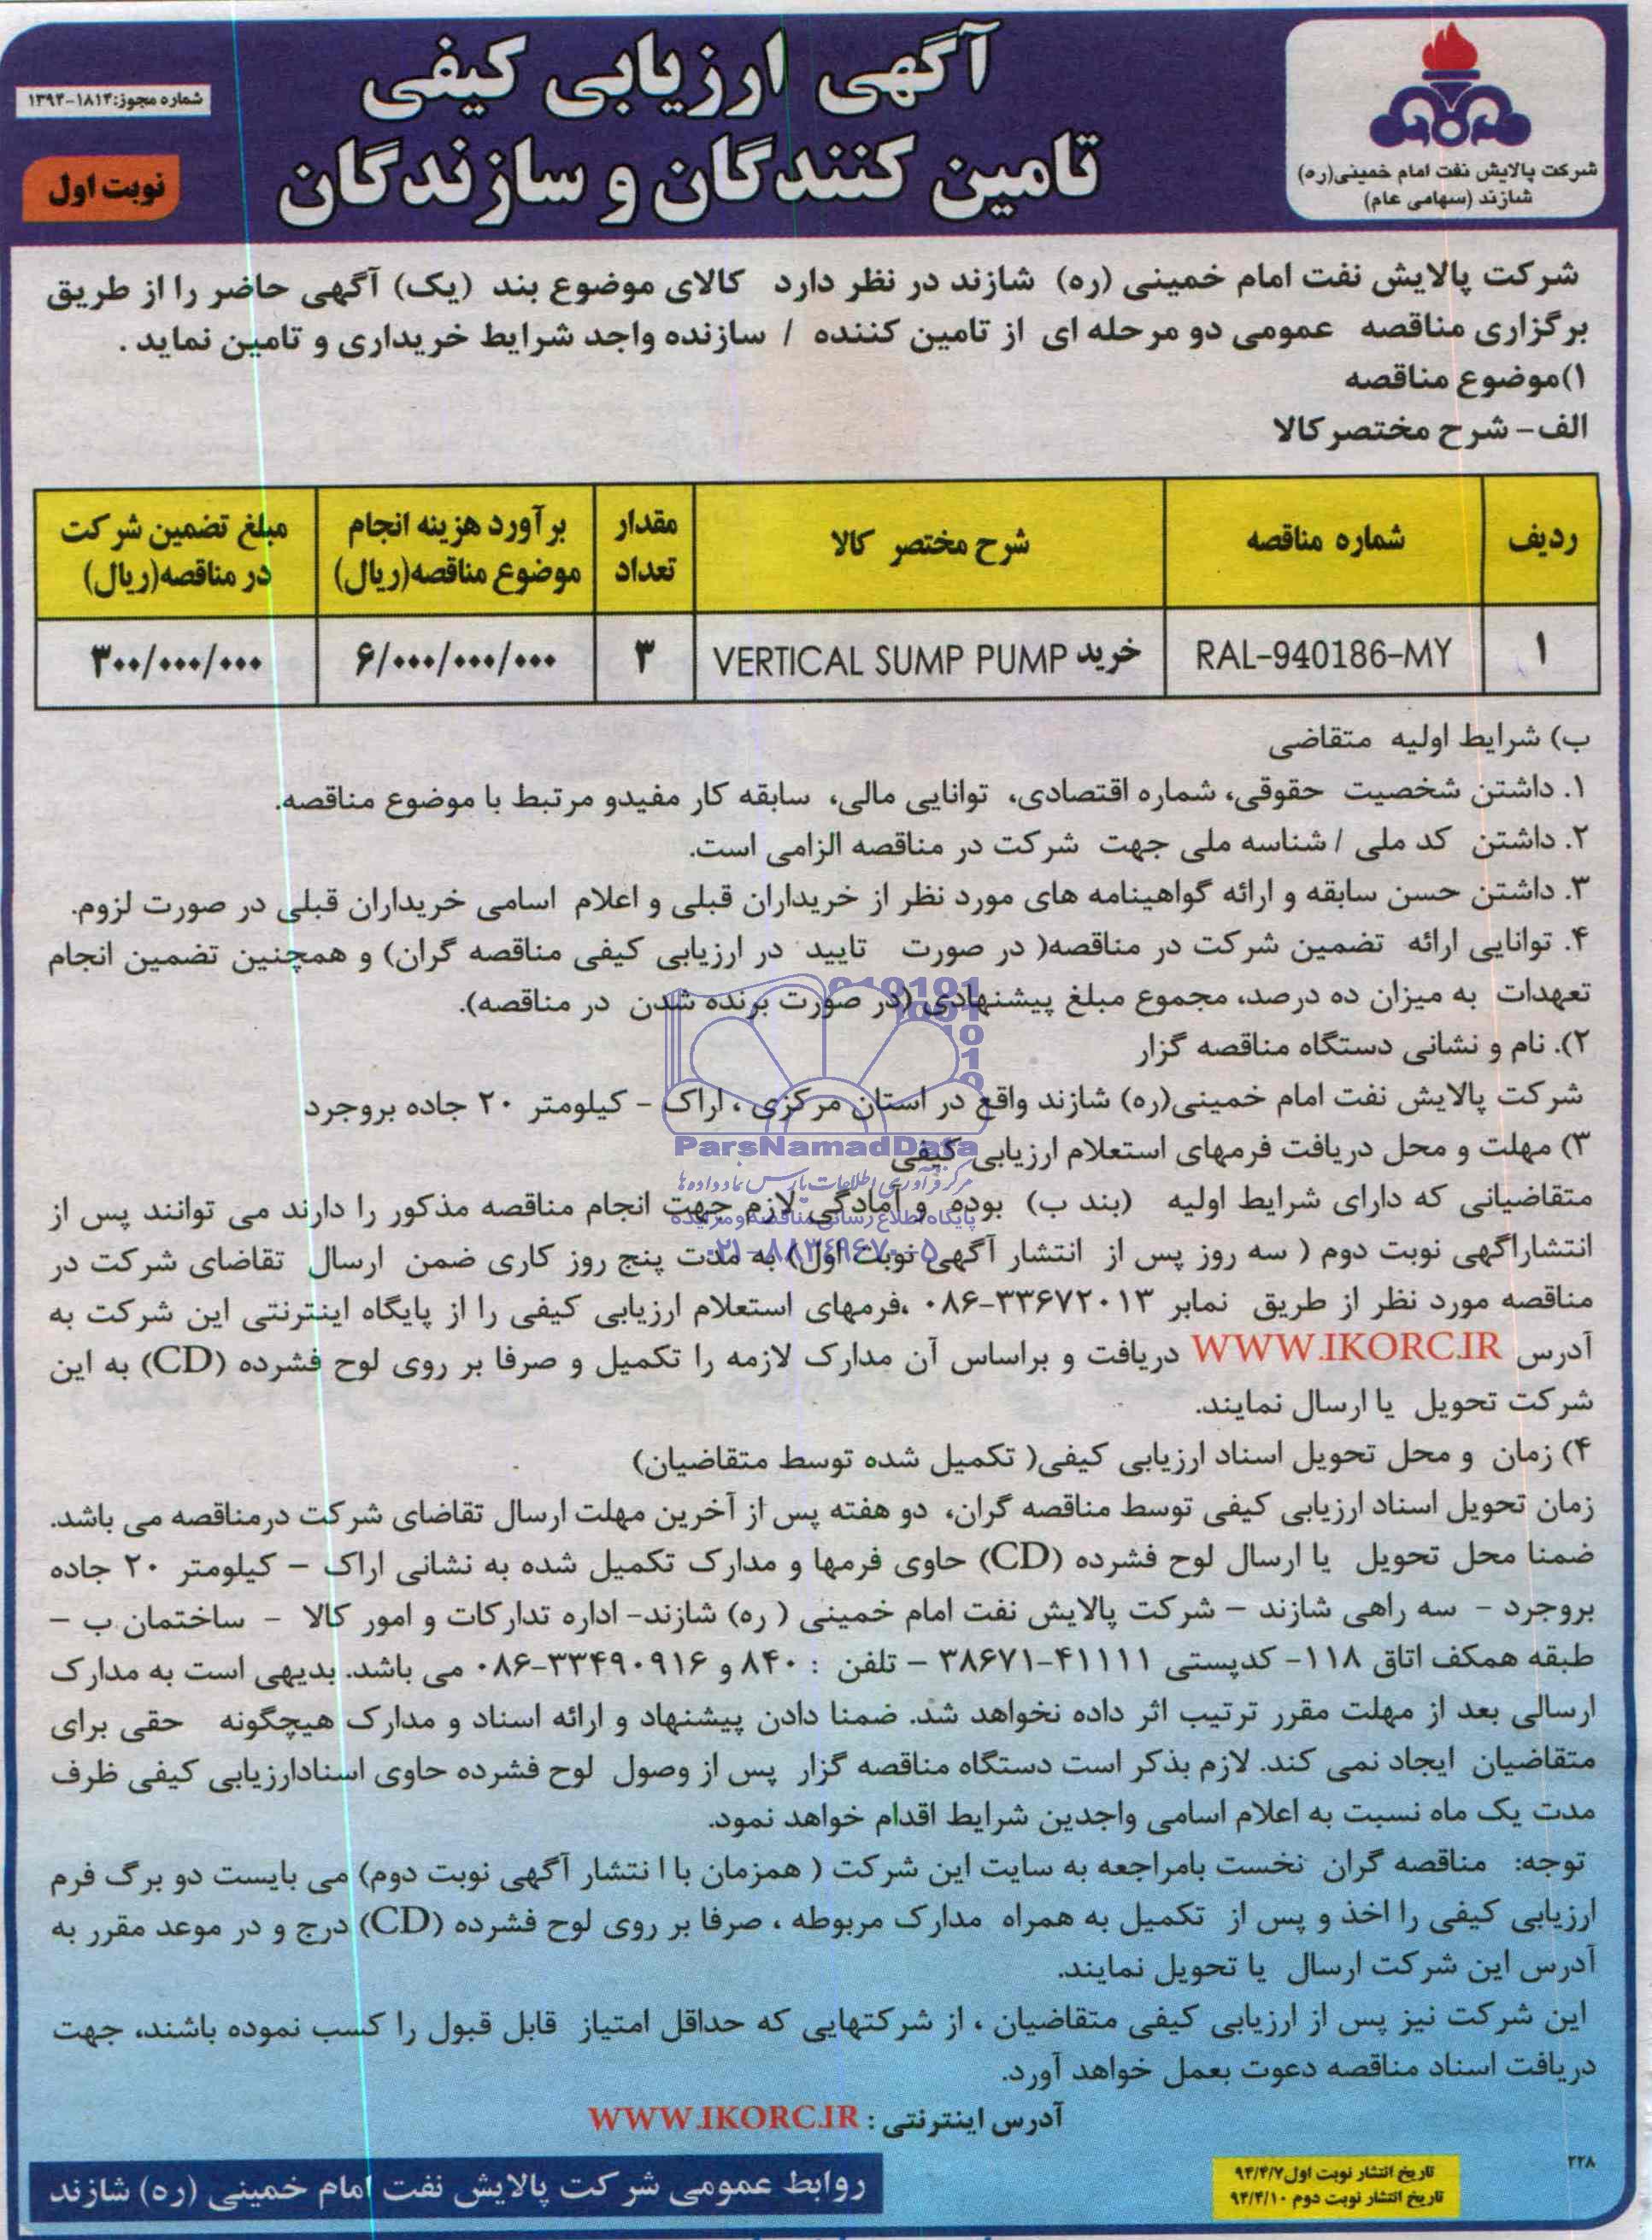 شرکت پالایش نفت امام خمینی(ره)
شازند (سهامی عام)
آگهی ارزیابی کیفی
تامین کنندگان و سازندگان
شماره مجوز:۱۸۱۴-۱۳۹۴
نوبت اول
شرکت پالایش نفت امام خمینی (ره) شازند در نظر دارد کالای موضوع بند (یک) آگهی حاضر را از طریق
برگزاری مناقصه عمومی دو مرحله ای از تامین کننده / سازنده واجد شرایط خریداری و تامین نماید .
۱)موضوع مناقصه
الف- شرح مختصر کالا
ردیف شماره مناقصه شرح مختصر کالا مقدار تعداد برآورد هزینه انجام موضوع مناقصه(ریال) مبلغ تضمین شرکت در مناقصه(ریال)
۱ RAL-940186-MY خرید VERTICAL SUMP PUMP ۳ ۶/۰۰۰/۰۰۰/۰۰۰ ۳۰۰/۰۰۰/۰۰۰
ب) شرایط اولیه متقاضی
۱. داشتن شخصیت حقوقی، شماره اقتصادی، توانایی مالی، سابقه کار مفیدو مرتبط با موضوع مناقصه.
۲. داشتن کد ملی / شناسه ملی جهت شرکت در مناقصه الزامی است.
۳. داشتن حسن سابقه و ارائه گواهینامه های مورد نظر از خریداران قبلی و اعلام اسامی خریداران قبلی در صورت لزوم.
۴. توانایی ارائه تضمین شرکت در مناقصه( در صورت تایید در ارزیابی کیفی مناقصه گران) و همچنین تضمین انجام
تعهدات به میزان ده درصد، مجموع مبلغ پیشنهادی (در صورت برنده شدن در مناقصه).
۲). نام و نشانی دستگاه مناقصه گزار
شرکت پالایش نفت امام خمینی(ره) شازند واقع در استان مرکزی ، اراک - کیلومتر ۲۰ جاده بروجرد
۳) مهلت و محل دریافت فرمهای استعلام ارزیابی کیفی
متقاضیانی که دارای شرایط اولیه (بند ب) بوده و آمادگی لازم جهت انجام مناقصه مذکور را دارند می توانند پس از
انتشاراگهی نوبت دوم ( سه روز پس از انتشار آگهی نوبت اول) به مدت پنج روز کاری ضمن ارسال تقاضای شرکت در
مناقصه مورد نظر از طریق نمابر ۳۳۶۷۲۰۱۳-۰۸۶ ،فرمهای استعلام ارزیابی کیفی را از پایگاه اینترنتی این شرکت به
آدرس WWW.IKORC.IR دریافت و براساس آن مدارک لازمه را تکمیل و صرفا بر روی لوح فشرده (CD) به این
شرکت تحویل یا ارسال نمایند.
۴) زمان و محل تحویل اسناد ارزیابی کیفی( تکمیل شده توسط متقاضیان)
زمان تحویل اسناد ارزیابی کیفی توسط مناقصه گران، دو هفته پس از آخرین مهلت ارسال تقاضای شرکت درمناقصه می باشد.
ضمنا محل تحویل یا ارسال لوح فشرده (CD) حاوی فرمها و مدارک تکمیل شده به نشانی اراک - کیلومتر ۲۰ جاده
بروجرد - سه راهی شازند - شرکت پالایش نفت امام خمینی ( ره) شازند- اداره تدارکات و امور کالا - ساختمان ب -
طبقه همکف اتاق ۱۱۸- کدپستی ۴۱۱۱۱-۳۸۶۷۱ - تلفن : ۸۴۰ و ۳۳۴۹۰۹۱۶-۰۸۶ می باشد. بدیهی است به مدارک
ارسالی بعد از مهلت مقرر ترتیب اثر داده نخواهد شد. ضمنا دادن پیشنهاد و ارائه اسناد و مدارک هیچگونه حقی برای
متقاضیان ایجاد نمی کند. لازم بذکر است دستگاه مناقصه گزار پس از وصول لوح فشرده حاوی اسنادارزیابی کیفی ظرف
مدت یک ماه نسبت به اعلام اسامی واجدین شرایط اقدام خواهد نمود.
توجه: مناقصه گران نخست بامراجعه به سایت این شرکت ( همزمان با ا نتشار آگهی نوبت دوم) می بایست دو برگ فرم
ارزیابی کیفی را اخذ و پس از تکمیل به همراه مدارک مربوطه ، صرفا بر روی لوح فشرده (CD) درج و در موعد مقرر به
آدرس این شرکت ارسال یا تحویل نمایند.
این شرکت نیز پس از ارزیابی کیفی متقاضیان ، از شرکتهایی که حداقل امتیاز قابل قبول را کسب نموده باشند، جهت
دریافت اسناد مناقصه دعوت بعمل خواهد آورد.
آدرس اینترنتی : WWW.IKORC.IR
۲۲۸
تاریخ انتشار نوبت اول ۹۴/۴/۷
تاریخ انتشار نوبت دوم ۹۴/۴/۱۰
روابط عمومی شرکت پالایش نفت امام خمینی (ره) شازند
ParsNamadData
مرکز فرآوری اطلاعات پارس نماد داده ها
پایگاه اطلاع رسانی مناقصه و مزایده
۰۲۱-۸۸۳۴۹۶۷۰-۵